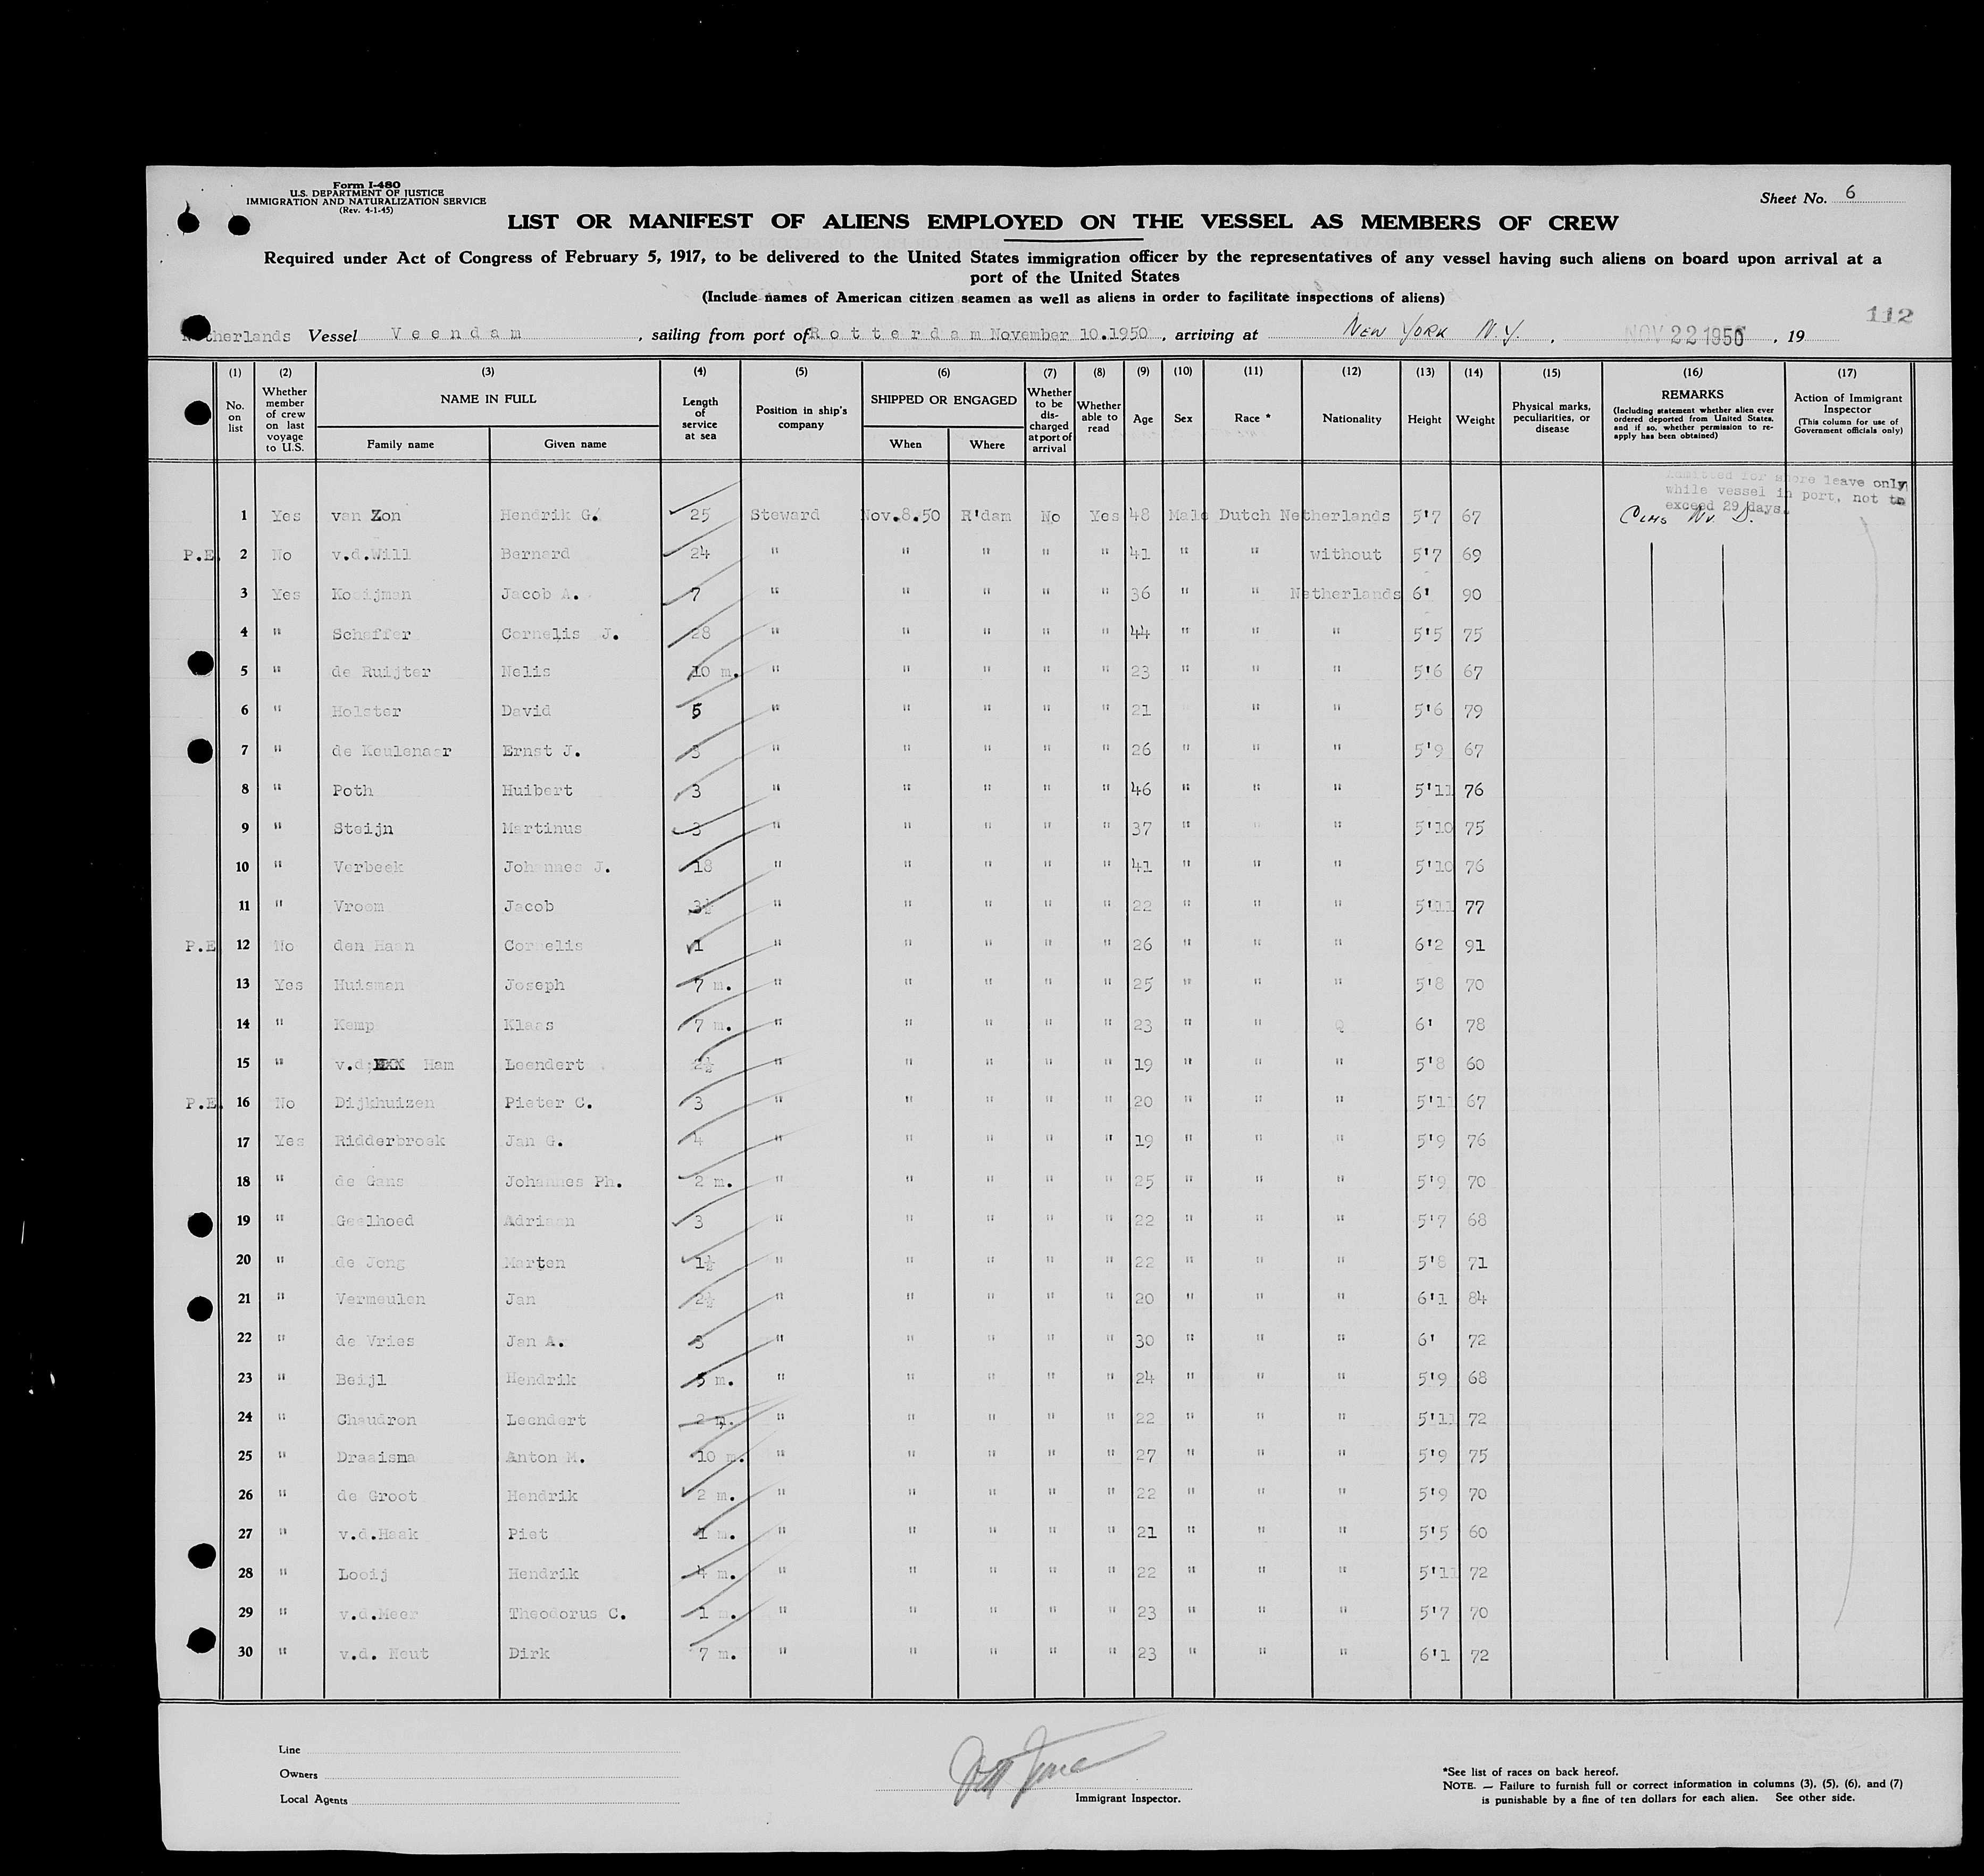 Form I-480
U.S. DEPARTMENT OF JUSTICE
IMMIGRATION AND NATURALIZATION SERVICE
(Rev. 4-1-45)
Sheet No. 6
LIST OR MANIFEST OF ALIENS EMPLOYED ON THE VESSEL AS MEMBERS OF CREW
Required under Act of Congress of February 5, 1917, to be delivered to the United States immigration officer by the representatives of any vessel having such aliens on board upon arrival at a
port of the United States
(Include names of American citizen seamen as well as aliens in order to facilitate inspections of aliens)
112
Netherlands Vessel Veendam, sailing from port of Rotterdam November 10.1950, arriving at NEW YORK N.Y., NOV 22 1950, 19
(1) (2) (3) (4) (5) (6) (7) (8) (9) (10) (11) (12) (13) (14) (15) (16) (17)
No. on list
Whether member of crew on last voyage to U.S.
NAME IN FULL
Family name
Given name
Length of service at sea
Position in ship's company
SHIPPED OR ENGAGED
When
Where
Whether to be discharged at port of arrival
Whether able to read
Age
Sex
Race *
Nationality
Height
Weight
Physical marks, peculiarities, or disease
REMARKS
(Including statement whether alien ever ordered deported from United States, and if so, whether permission to re-apply has been obtained)
Action of Immigrant Inspector
(This column for use of Government officials only)
Admitted for shore leave only
while vessel in port, not to
exceed 29 days.
1 Yes van Zon Hendrik G. 25 Steward Nov.8.50 R'dam No Yes 48 Male Dutch Netherlands 5'7 67
P.E. 2 No v.d.Will Bernard 24 " " " " " 41 " " without 5'7 69
3 Yes Kooijman Jacob A. 7 " " " " " 36 " " Netherlands 6' 90
4 " Scheffer Cornelis J. 28 " " " " " 44 " " " 5'5 75
5 " de Ruijter Nelis 10 m. " " " " " 23 " " " 5'6 67
6 " Holster David 5 " " " " " 21 " " 5'6 79
7 " de Keulenaer Ernst J. 3 " " " " " 26 " " " 5'9 67
8 " Poth Huibert 3 " " " " " 46 " " " 5'11 76
9 " Steijn Martinus 3 " " " " " 37 " " " 5'10 75
10 " Verbeek Johannes J. 18 " " " " " 41 " " " 5'10 76
11 " Vroom Jacob 3½ " " " " " 22 " " " 5'11 77
P.E 12 No den Haan Cornelis 1 " " " " " 26 " " " 6'2 91
13 Yes Huisman Joseph 7 m. " " " " " 25 " " " 5'8 70
14 " Kemp Klaas 7 m. " " " " " 23 " " Q 6' 78
15 " v.d. Ham Leendert 2½ " " " " " 19 " " " 5'8 60
P.E. 16 No Dijkhuizen Pieter C. 3 " " " " " 20 " " " 5'11 67
17 Yes Ridderbroek Jan G. 4 " " " " " 19 " " " 5'9 76
18 " de Gans Johannes Ph. 2 m. " " " " " 25 " " " 5'9 70
19 " Geelhoed Adriaan 3 " " " " " 22 " " " 5'7 68
20 " de Jong Marten 1½ " " " " " 22 " " " 5'8 71
21 " Vermeulen Jan 2½ " " " " " 20 " " " 6'1 84
22 " de Vries Jan A. 3 " " " " " 30 " " " 6' 72
23 " Beijl Hendrik 5 m. " " " " " 24 " " " 5'9 68
24 " Chaudron Leendert 2 m. " " " " " 22 " " " 5'11 72
25 " Draaisma Anton M. 10 m. " " " " " 27 " " " 5'9 75
26 " de Groot Hendrik 2 m. " " " " " 22 " " " 5'9 70
27 " v.d.Haak Piet 1 m. " " " " " 21 " " " 5'5 60
28 " Looij Hendrik 4 m. " " " " " 22 " " " 5'11 72
29 " v.d.Meer Theodorus C. 1 m. " " " " " 23 " " " 5'7 70
30 " v.d. Neut Dirk 7 m. " " " " " 23 " " " 6'1 72
Line
Owners
Local Agents
Immigrant Inspector.
*See list of races on back hereof.
NOTE. — Failure to furnish full or correct information in columns (3), (5), (6), and (7)
is punishable by a fine of ten dollars for each alien. See other side.